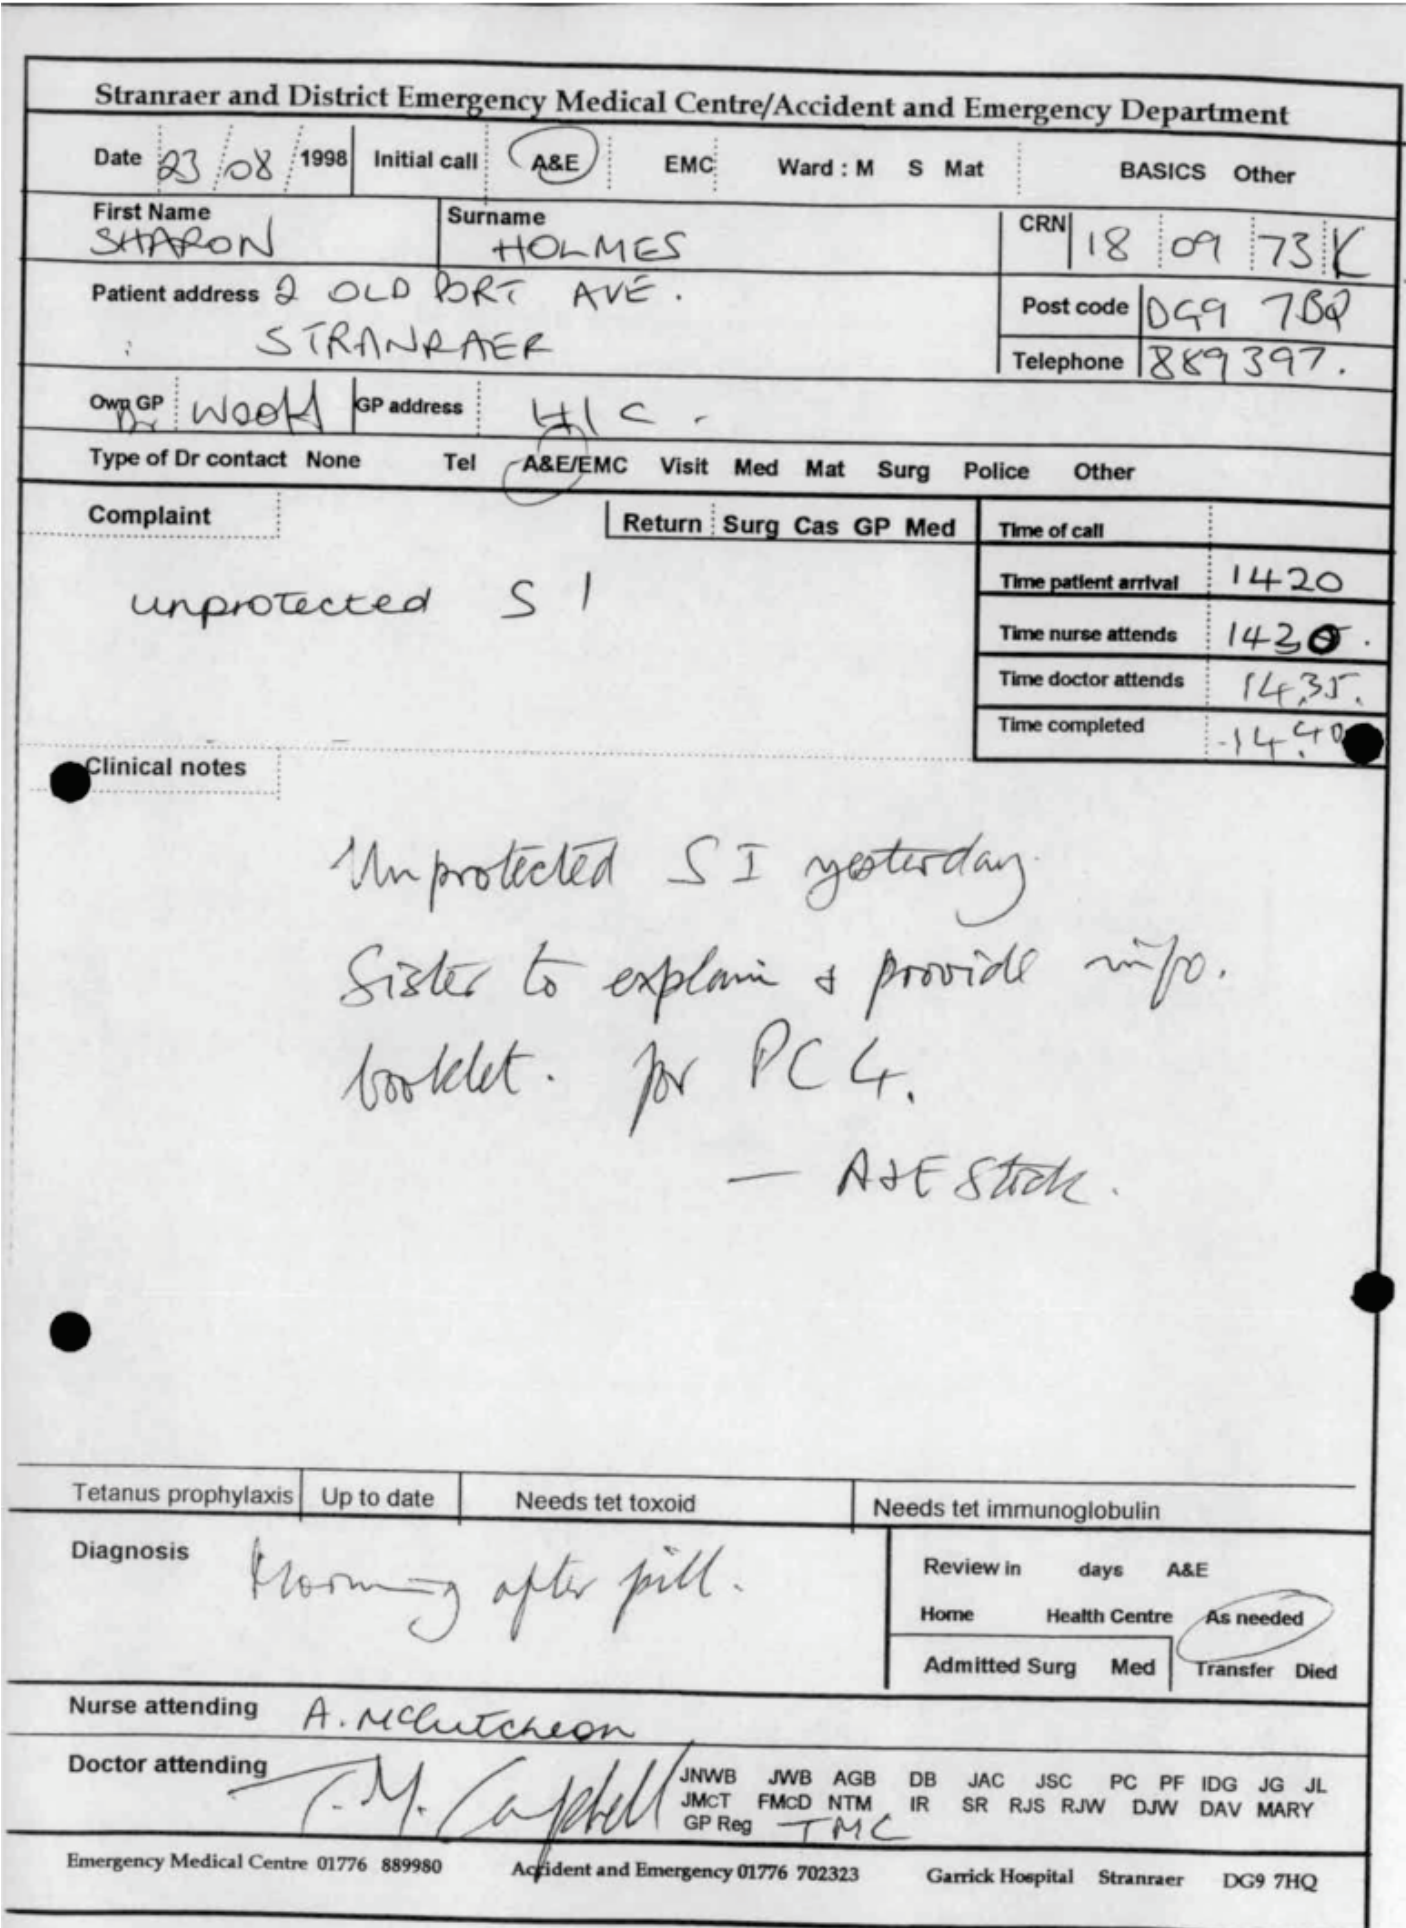 Stranraer and District Emergency Medical Centre/Accident and Emergency Department
Date 23/08/1998 Initial call A&E EMC Ward : M S Mat BASICS Other
First Name Surname CRN 18 09 73 K
SHARON HOLMES
Patient address 2 OLD PORT AVE. Post code DG9 7BQ
STRANRAER Telephone 889397.
Own GP Dr Wood GP address HC.
Type of Dr contact None Tel A&E/EMC Visit Med Mat Surg Police Other
Complaint Return Surg Cas GP Med Time of call
Time patient arrival 1420
unprotected S I
Time nurse attends 1430.
Time doctor attends 14.35.
Time completed 14.40
Clinical notes
Unprotected S I yesterday.
Sister to explain & provide info.
booklet. for PC4.
— A&E Stock.
Tetanus prophylaxis Up to date Needs tet toxoid Needs tet immunoglobulin
Diagnosis Morning after pill.
Review in days A&E
Home Health Centre As needed
Admitted Surg Med Transfer Died
Nurse attending A. McCutcheon
Doctor attending T.M. Campbell
JNWB JWB AGB DB JAC JSC PC PF IDG JG JL
JMcT FMcD NTM IR SR RJS RJW DJW DAV MARY
GP Reg TMC
Emergency Medical Centre 01776 889980 Accident and Emergency 01776 702323 Garrick Hospital Stranraer DG9 7HQ